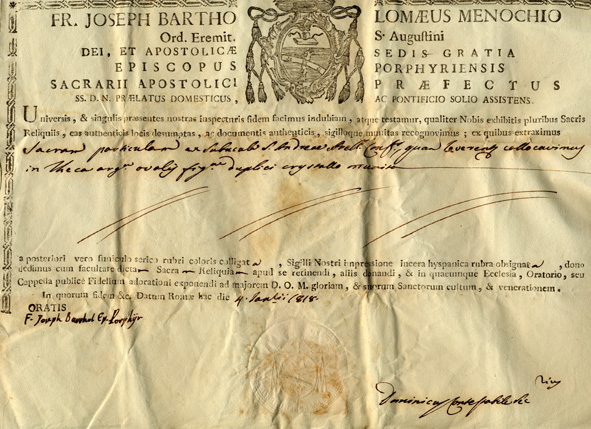 FR. JOSEPH BARTHO LOMÆUS MENOCHIO
Ord. Eremit. S. Augustini
DEI, ET APOSTOLICÆ SEDIS GRATIA
EPISCOPUS PORPHYRIENSIS
SACRARII APOSTOLICI PRÆFECTUS
SS. D. N. PRÆLATUS DOMESTICUS, AC PONTIFICIO SOLIO ASSISTENS.
Universis, & singulis præsentes nostras inspecturis fidem facimus indubiam, atque testamur, qualiter Nobis exhibitis pluribus Sacris
Reliquiis, eas authenticis locis demptas, ac documentis authenticis, sigilloque munitas recognovimus; ex quibus extraximus
Sacram particulam ex S. Andreæ Conf. quam reverenter collocavimus
in Theca arg. ovalis fig. duplici crystallo munita
a posteriori vero funiculo serico rubri coloris colligata, Sigilli Nostri impressione in cera hyspanica rubra obsignata, dono
dedimus cum facultate dictam Sacram Reliquiam apud se retinendi, aliis donandi, & in quacumque Ecclesia, Oratorio, seu
Cappella publicæ Fidelium adorationi exponendi ad majorem D. O. M. gloriam, & suorum Sanctorum cultum, & venerationem.
In quorum fidem &c. Datum Romæ hac die 4. 1818.
GRATIS
F. Joseph Barthol Ep. Porphyr
Dominicus